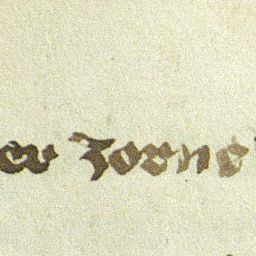 er zorne